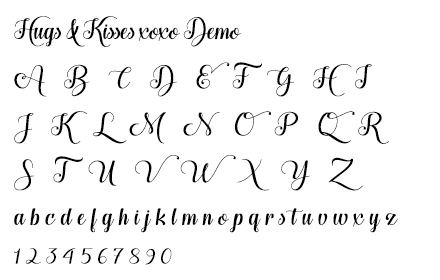 Hugs & Kisses xoxo Demo
A B C D E F G H I
J K L M N O P Q R
S T U V W X Y Z
a b c d e f g h i j k l m n o p q r s t u v w x y z
1 2 3 4 5 6 7 8 9 0